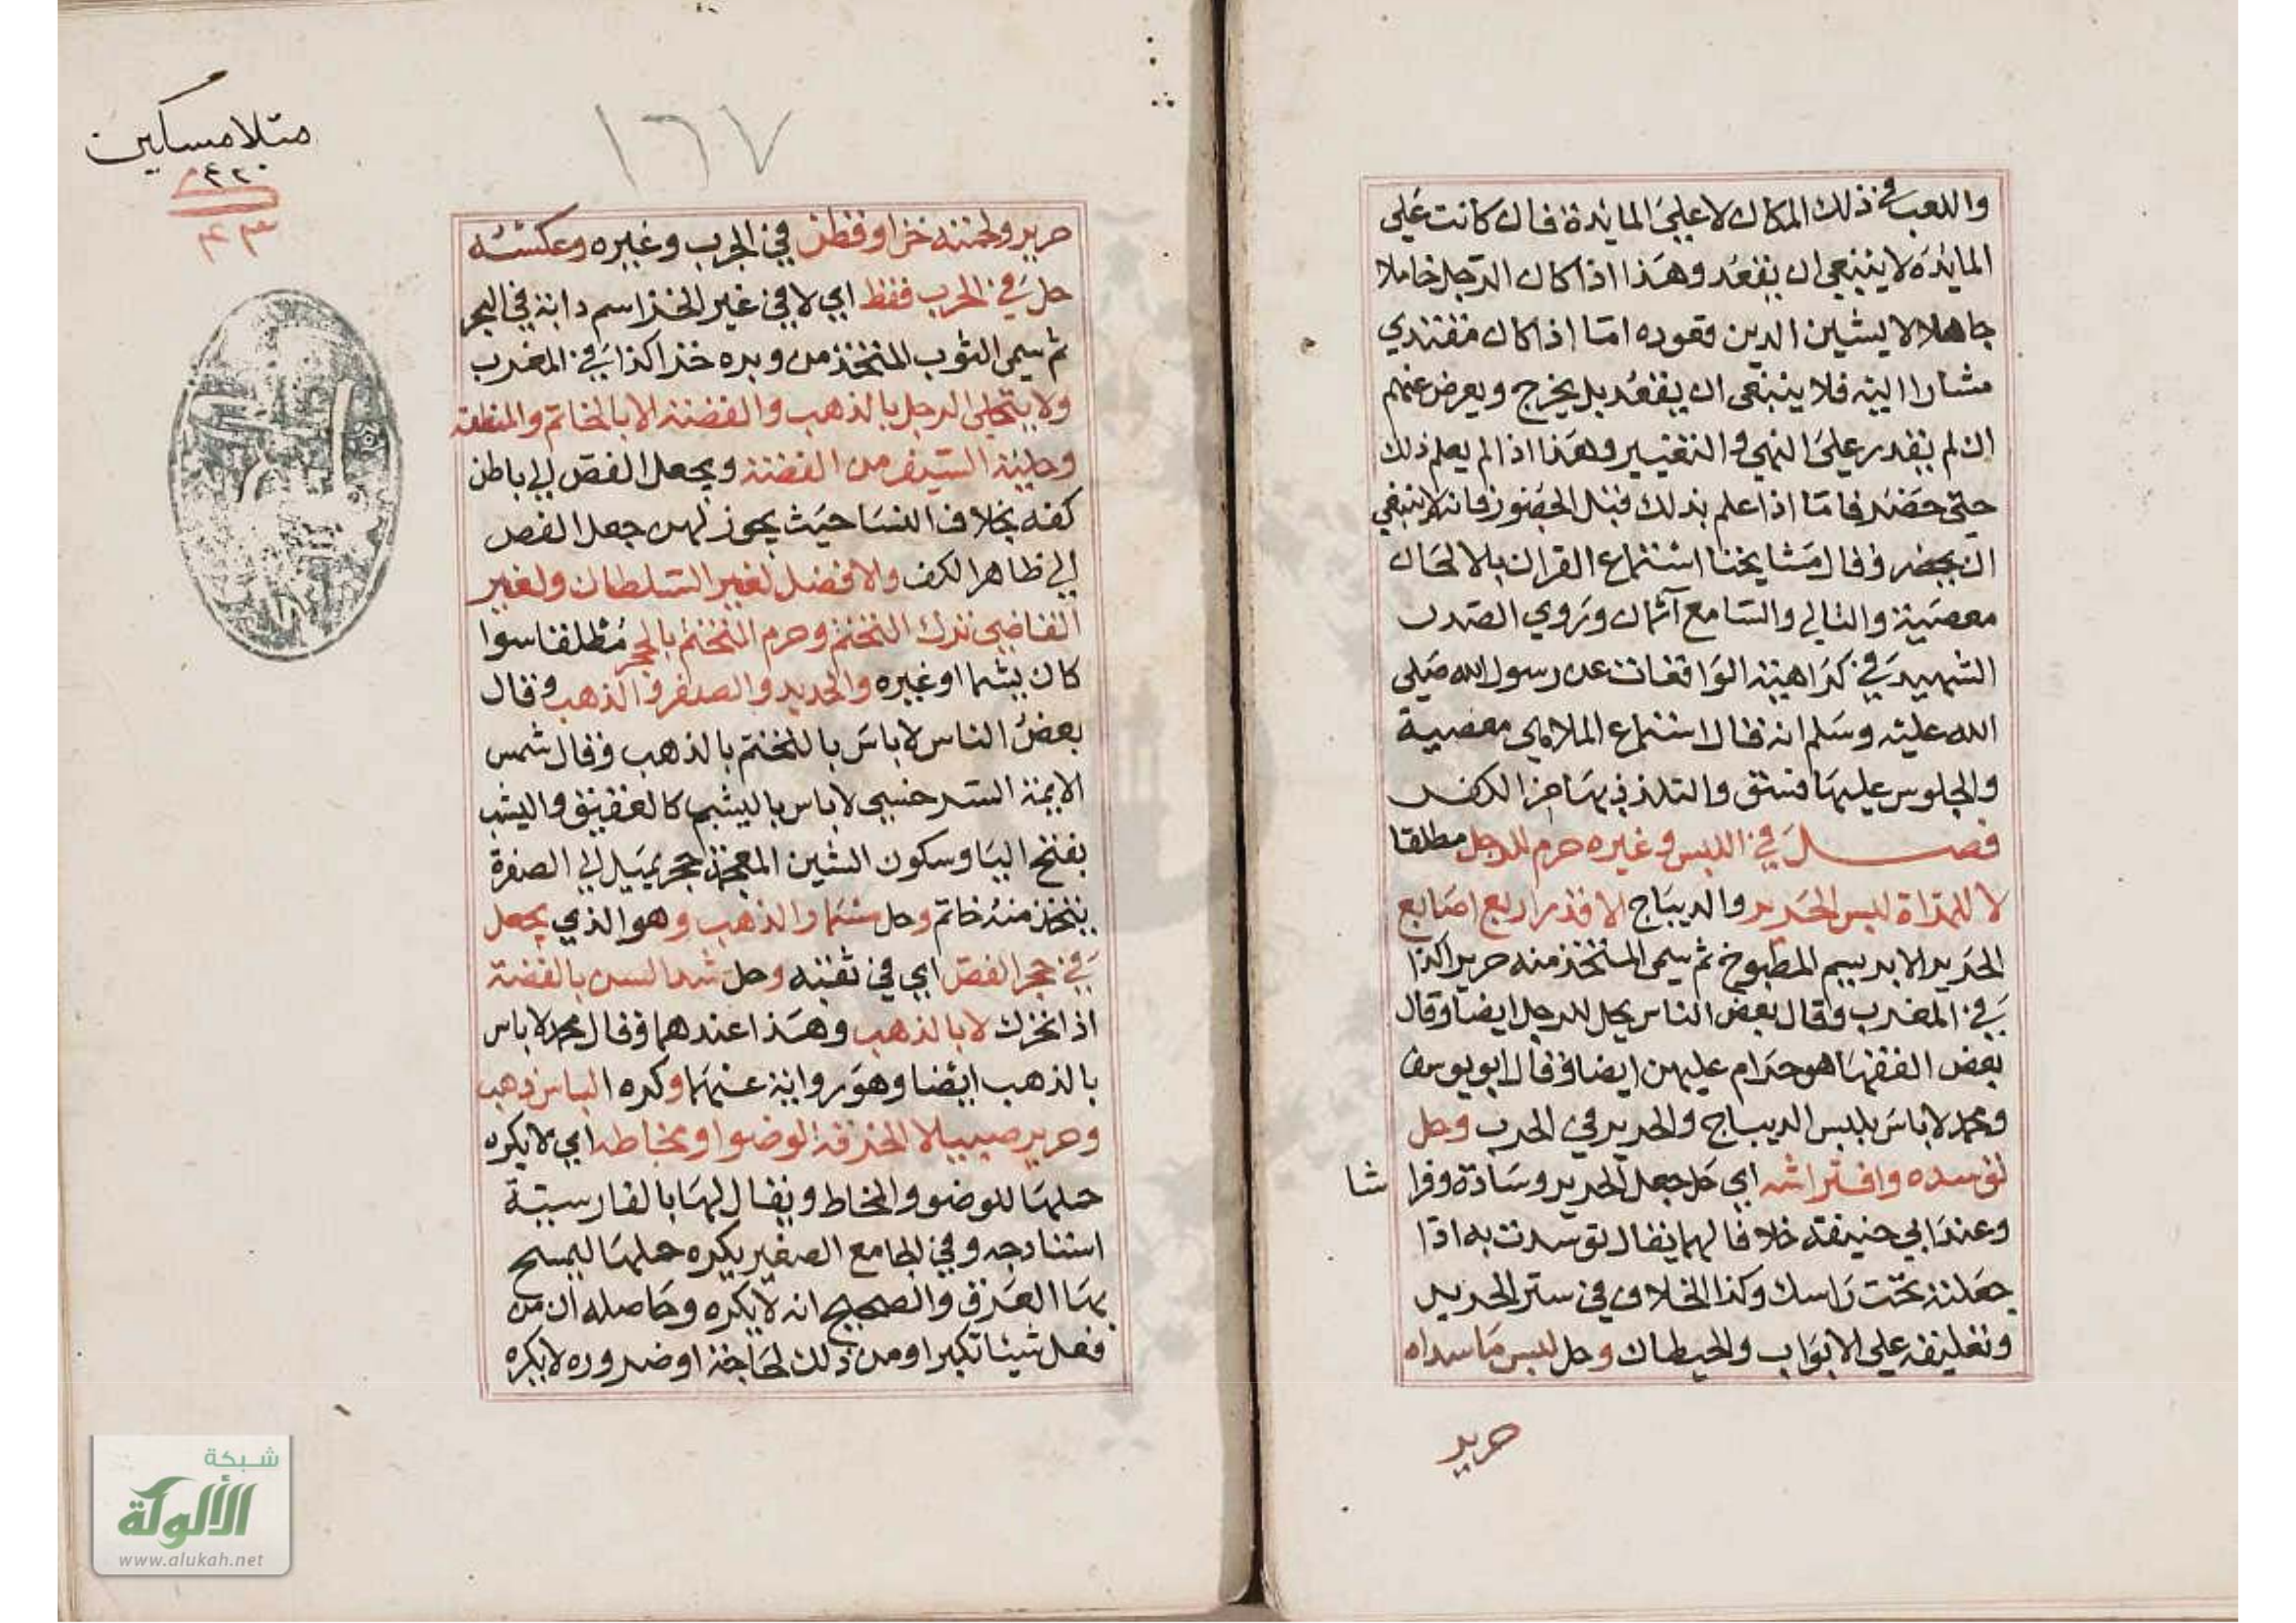 واللعب في ذلك المكان لا علي المايدة فان كانت علي
المايدة لا ينبغي ان يقعد وهذا اذا كان الرجل خاملا
جاهلا لا يشين الدين قعوده اما اذا كان مقتدي
مشارا اليه فلا ينبغي ان يقعد بل يخرج ويعرض عنهم
ان لم يقدر علي النهي والتغيير وهذا اذا لم يعلم ذلك
حتي حضر فاما اذا علم بذلك قبل الحضور فانه لا ينبغي
ان يحضر وقال مشايخنا استماع القران بالالحان
معصية والتالي والسامع آثمان وروي الصدر
الشهيد في كراهية الواقعات عن رسول الله صلي
الله عليه وسلم انه قال استماع الملاهي معصية
والجلوس عليها فسق والتلذذ بها من الكفر
فصل في اللبس وغيره حرم للرجل مطلقا
لا للمراة لبس الحرير والديباج الا قدر اربع اصابع
الحرير الابريسم المطبوخ ثم سمي المتخذ منه حريرا كذا
في المغرب وقال بعض الناس يحل للرجل ايضا وقال
بعض الفقها هو حرام عليهن ايضا وقال ابو يوسف
ومحمد لا باس بلبس الديباج والحرير في الحرب وحل
توسده وافتراشه اي حل جعل الحرير وسادة وفرا شا
وعند ابي حنيفة خلافا لهما يقال توسدت به اذا
جعلته تحت راسك وكذا الخلاف في ستر الحرير
وتعليقه علي الابواب والحيطان وحل لبس ما سداه
حرير
متلا مسكين
١٦٧
حرير ولحمته خز او قطن في الحرب وغيره وعكسه
حل في الحرب فقط اي لا في غير الخز اسم دابة في البحر
ثم سمي الثوب المتخذ من وبره خزا كذا في المغرب
ولا يتحلي الرجل بالذهب والفضة الا بالخاتم والمنطقة
وحلية السيف من الفضة ويجعل الفص الي باطن
كفه بخلاف النسا حيث يجوز لهن جعل الفص
الي ظاهر الكف والافضل لغير السلطان ولغير
القاضي ترك التختم وحرم التختم بالحجر مطلقا سوا
كان يشما او غيره والحديد والصفر والذهب وقال
بعض الناس لا باس بالتختم بالذهب وقال شمس
الايمة السرخسي لا باس باليشم كالعقيق واليشب
بفتح اليا وسكون الشين المعجمة حجر يميل الي الصفرة
يتخذ منه خاتم وحل مسمار الذهب وهو الذي يجعل
في حجر الفص اي في ثقبه وحل شد السن بالفضة
اذا تحرك لا بالذهب وهذا عندهما وقال محمد لا باس
بالذهب ايضا وهو رواية عنهما وكره الباس ذهب
وحرير صبيا لا الخرقة لوضوا ومخاط اي لا يكره
حملها للوضو والمخاط ويقال لها بالفارسية
وفي الجامع الصغير يكره حملها ليمسح
بها العرق والصحيح انه لا يكره وحاصله ان من
فعل شيئا تكبرا ومن ذلك لحاجة او ضروره لا يكره
شبكة
الألوكة
www.alukah.net